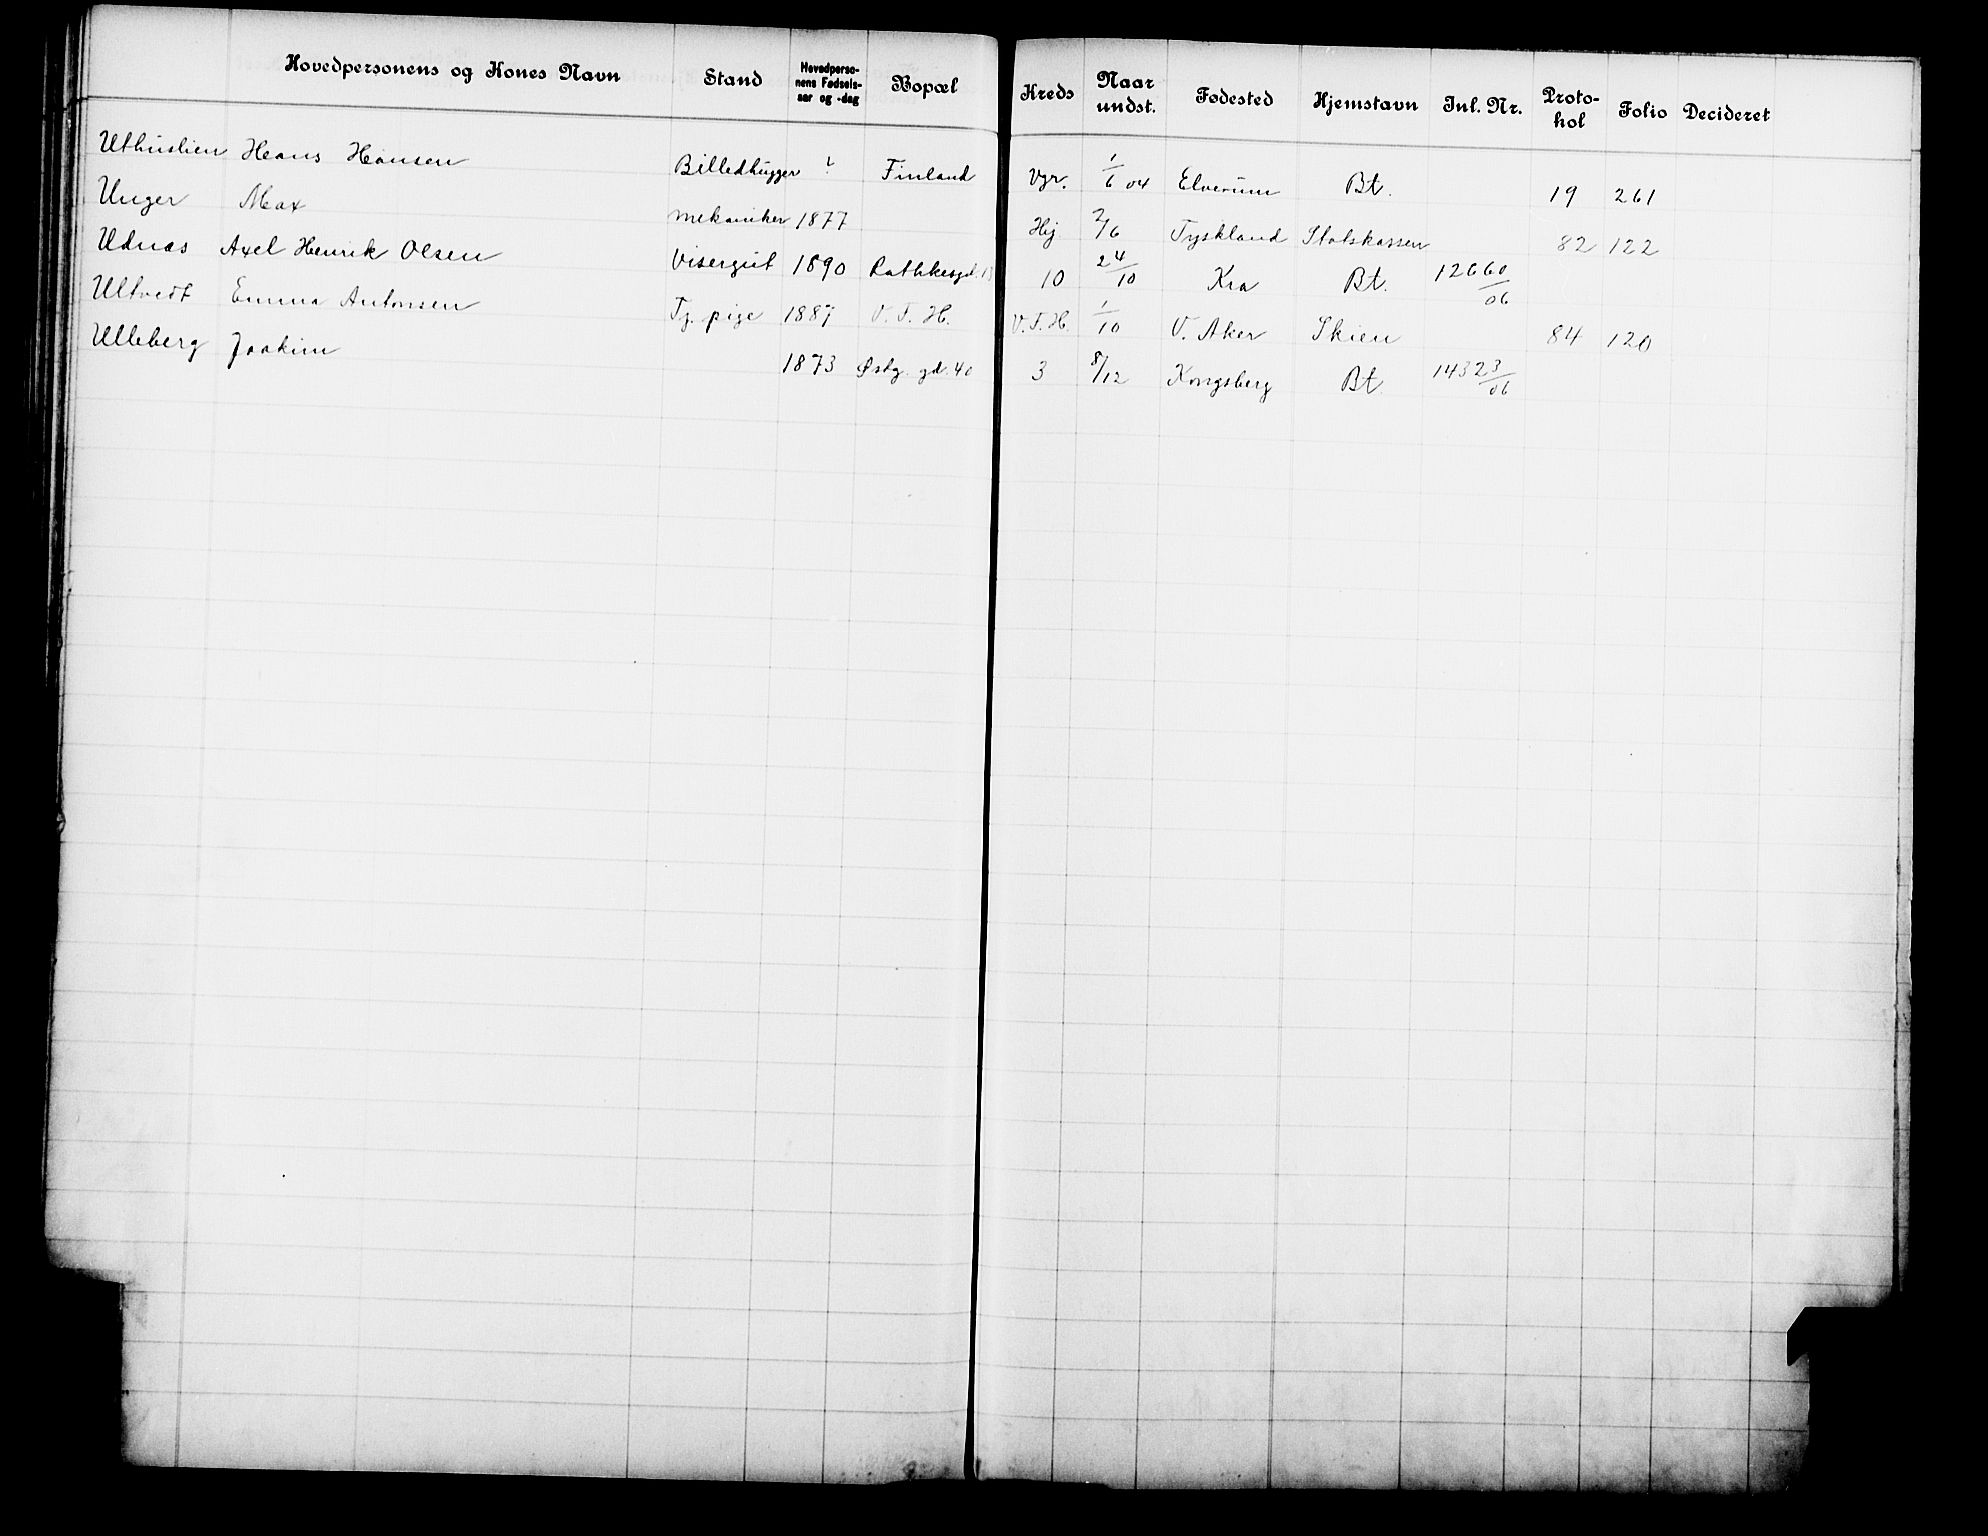 Hovedpersonens og Kones Navn Stand Hovedperso-nens Fødsels-aar og -dag Bopæl Kreds Naar undst. Fødested Hjemstavn Jnl. Nr. Proto-kol Folio Decideret
Uthuslien Hans Hansen Billedhugger ? Finland Vgr. 1/6 04 Elverum Bt. 19 261
Unger Max mekaniker 1877 Hj. 2/6 Tyskland Statskassen 82 122
Udnæs Axel Henrik Olsen Visergut 1890 Rathkesgd. 10 24/10 Kra Bt. 12660/06
Ultvedt Emma Antonsen Tj. pige 1887 V. F. H. V. F. H. 1/10 V. Aker Skien 84 120
Ulleberg Joakim 1873 Østg. gd. 40 3 8/12 Kongsberg Bt. 14323/06